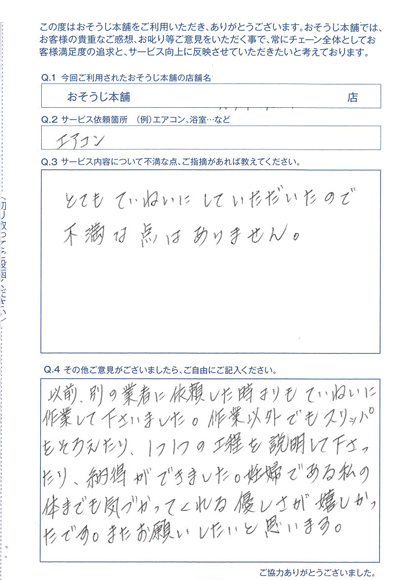 この度はおそうじ本舗をご利用いただき、ありがとうございます。おそうじ本舗では、
お客様の貴重なご感想、お叱り等ご意見をいただく事で、常にチェーン全体としてお
客様満足度の追求と、サービス向上に反映させていただきたいと考えております。
Q.1 今回ご利用されたおそうじ本舗の店舗名
おそうじ本舗 店
Q.2 サービス依頼箇所 (例)エアコン、浴室…など
エアコン
Q.3 サービス内容について不満な点、ご指摘があれば教えてください。
とても ていねいに していただいたので
不満な点はありません。
Q.4 その他ご意見がございましたら、ご自由にご記入ください。
以前、別の業者に依頼した時よりも ていねいに
作業して下さいました。作業以外でもスリッパ
をそろえたり、1つ1つの工程を説明して下さっ
たり、納得ができました。妊婦である私の
体までも気づかってくれる優しさが嬉しかっ
たです。またお願いしたいと思います。
ご協力ありがとうございました。